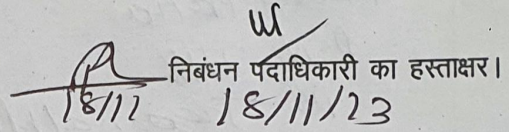 निबंधन पदाधिकारी का हस्ताक्षर।
18/11 18/11/23